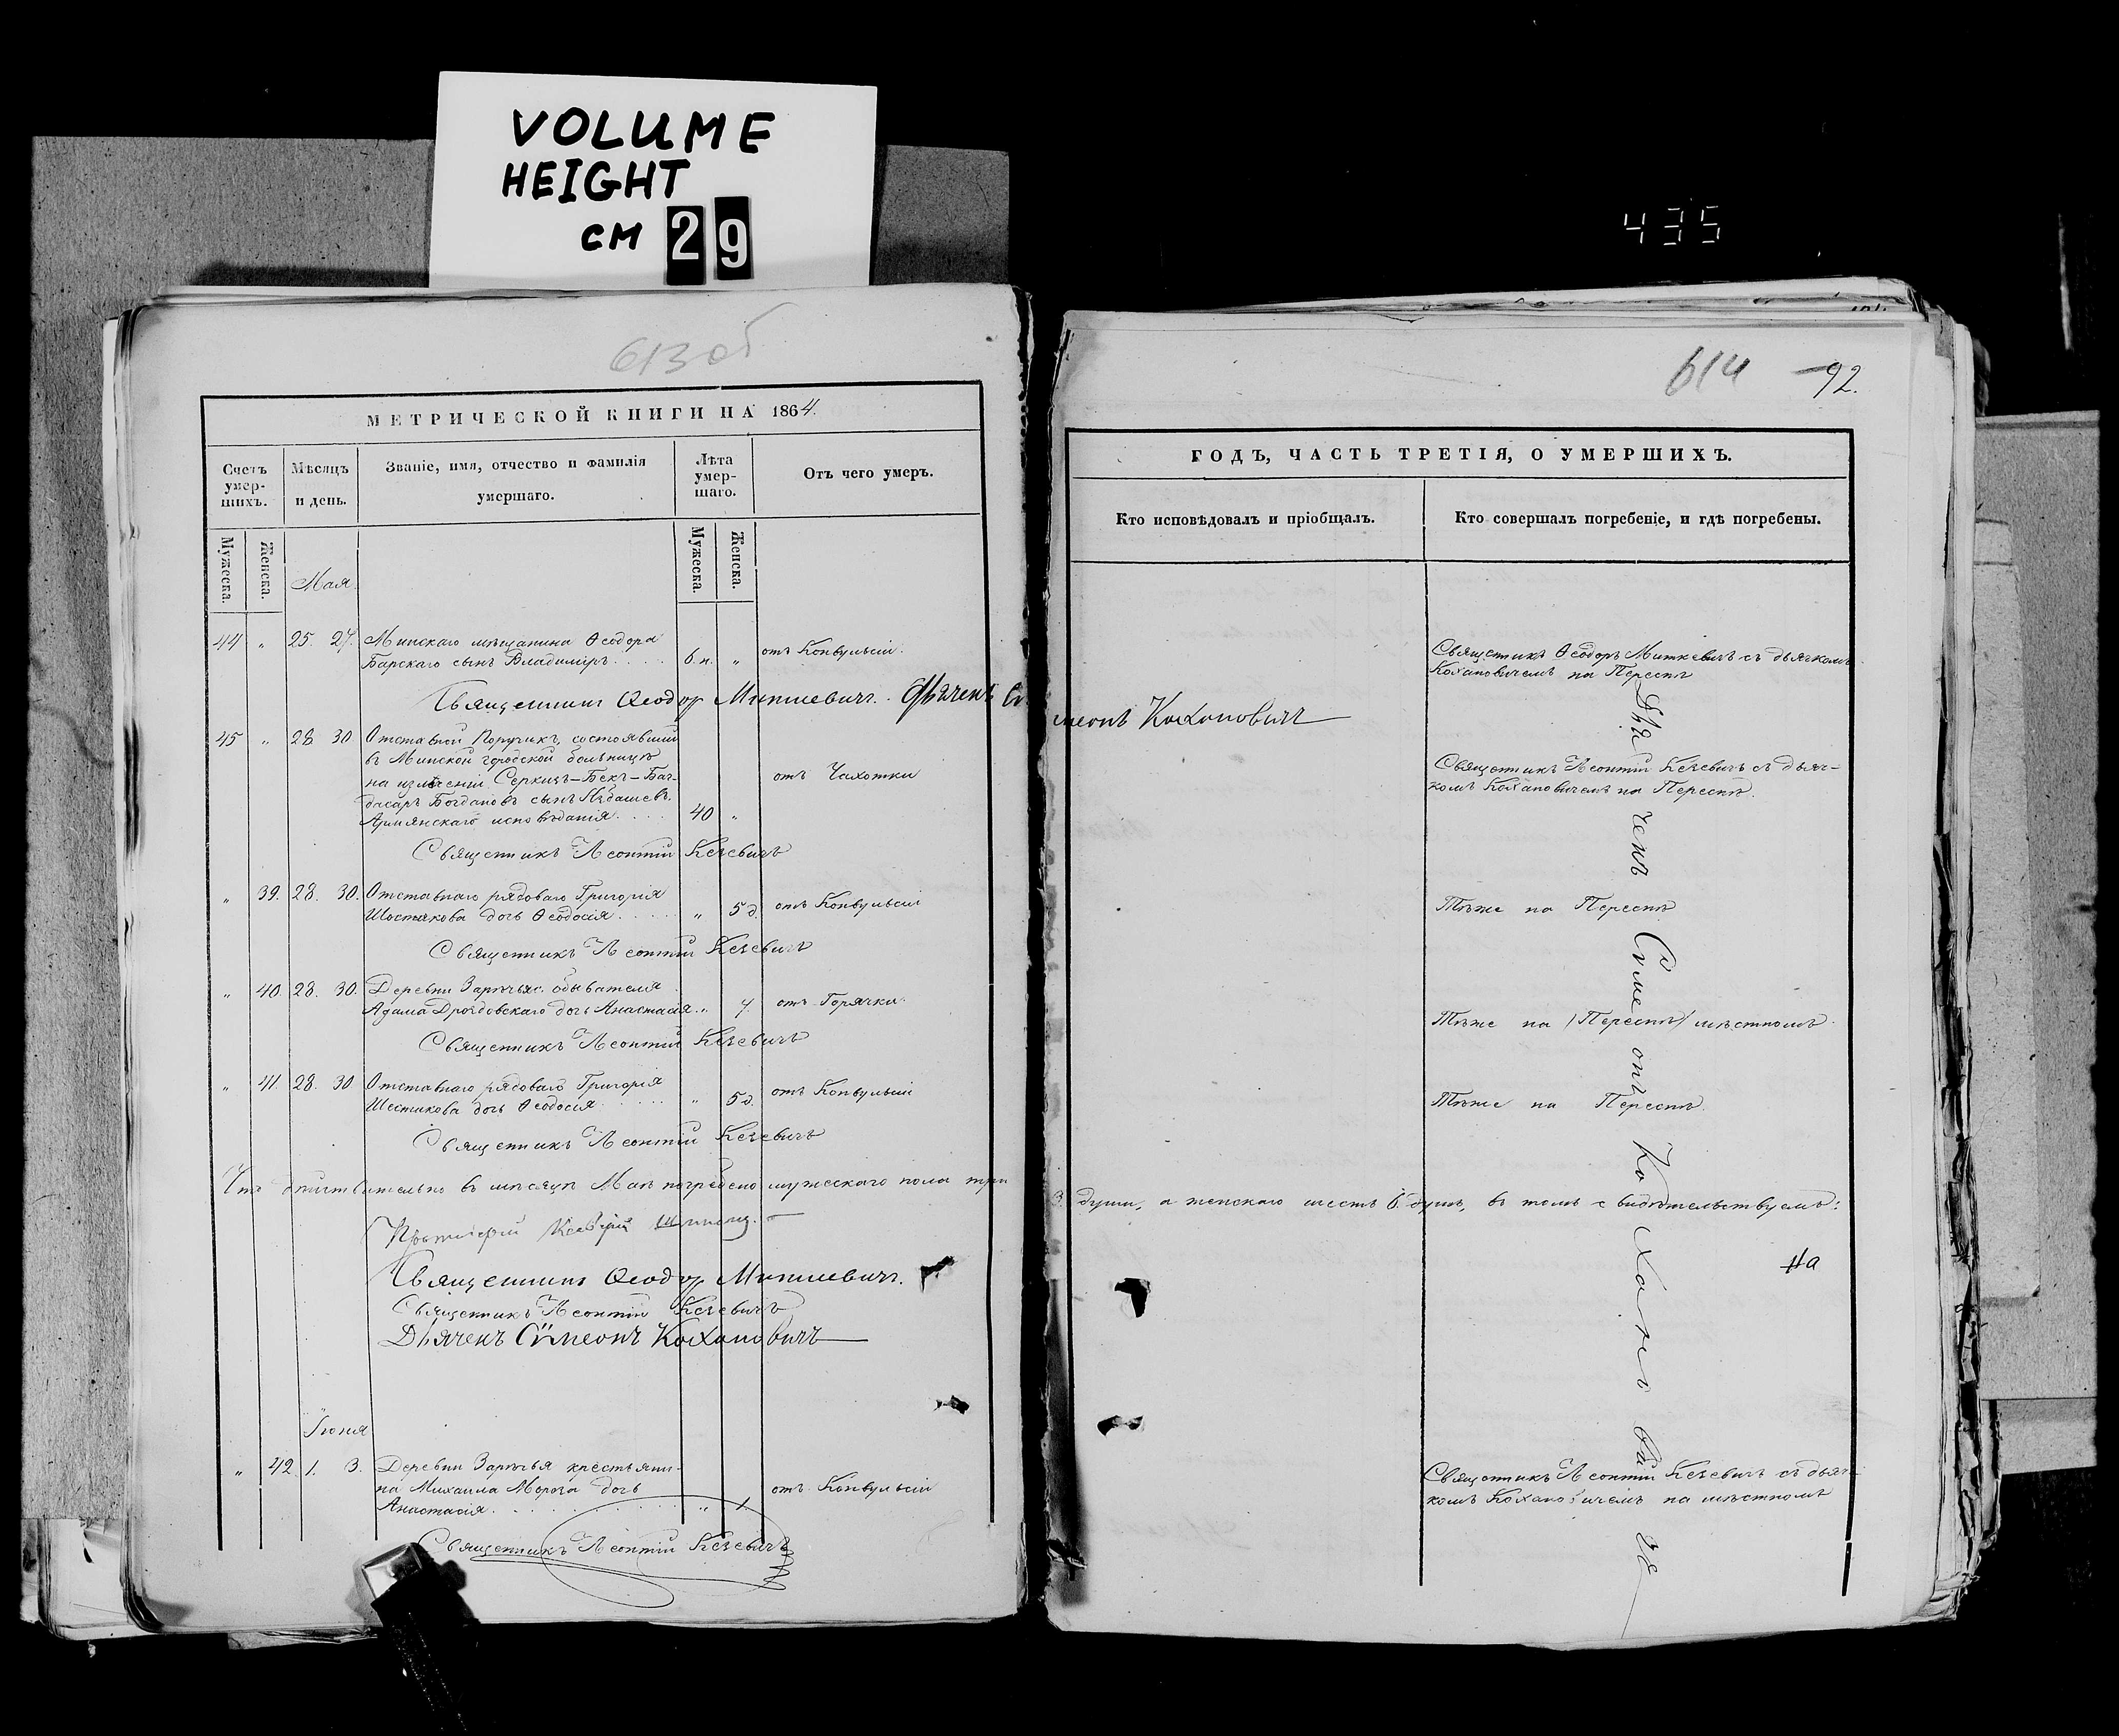 VOLUME
HEIGHT
CM 29
435
613 об
МЕТРИЧЕСКОЙ КНИГИ НА 1864.
Счетъ умер-шихъ.
Мѣсяцъ и день.
Званіе, имя, отчество и фамилія умершаго.
Лѣта умер-шаго.
Отъ чего умеръ.
Мужеска.
Женска.
Мужеска.
Женска.
Мая
44 „ 25. 27. Минскаго мѣщанина Ѳеодора
Барскаго сынъ Владиміръ . . . . . 6.н. „ отъ Конвульсій.
Священникъ Ѳеодоръ Миткевичъ. Дьячекъ Симеонъ Кохановичъ
45 „ 28 30 Отставной Поручикъ, состоявшій
въ Минской городской больницѣ
на излеченіи Серкизъ-Бекъ-Баг-
дасаръ Богдановъ сынъ
Армянскаго исповѣданія . . . . 40 „ отъ Чахотки
Священникъ Леонтій Кезевичъ
„ 39. 28. 30. Отставнаго рядоваго Григорія
Шостакова дочь Ѳеодосія . . . . . „ 5 д. отъ Конвульсій
Священникъ Леонтій Кезевичъ
„ 40. 28. 30. Деревни Зарѣчья обывателя
Адама Дроздовскаго дочь Анастасія . „ 7. отъ Горячки
Священникъ Леонтій Кезевичъ
„ 41. 28. 30 Отставнаго рядоваго Григорія
Шестакова дочь Ѳеодосія . . . . . „ 5 д. отъ Конвульсій
Священникъ Леонтій Кезевичъ
Что дѣйствительно въ мѣсяцѣ Маѣ погребено мужескаго пола три 3 души, а женскаго шесть 6 душъ, въ томъ свидѣтельствуемъ:
Протоіерей
Священникъ Ѳеодоръ Миткевичъ.
Священникъ Леонтій Кезевичъ
Дьячекъ Сѵмеонъ Кохановичъ
Іюня
„ 42. 1. 3. Деревни Зарѣчья крестьяни-
на Михаила Мороза дочь
Анастасія . . . . . „ 1 отъ Конвульсій
Священникъ Леонтій Кезевичъ
614 92.
ГОДЪ, ЧАСТЬ ТРЕТІЯ, О УМЕРШИХЪ.
Кто исповѣдовалъ и пріобщалъ.
Кто совершалъ погребеніе, и гдѣ погребены.
Священникъ Ѳеодоръ Миткевичъ съ дьячкомъ
Кохановичемъ на Переспѣ
Священникъ Леонтій Кезевичъ съ дьяч-
комъ Кохановичемъ на Переспѣ.
Тѣже на Переспѣ
Тѣже на /Переспѣ/ мѣстномъ
Тѣже на Переспѣ.
На
Священникъ Леонтій Кезевичъ съ дьяч-
комъ Кохановичемъ на мѣстномъ
Дьячекъ Сѵмеонъ Кохановичъ